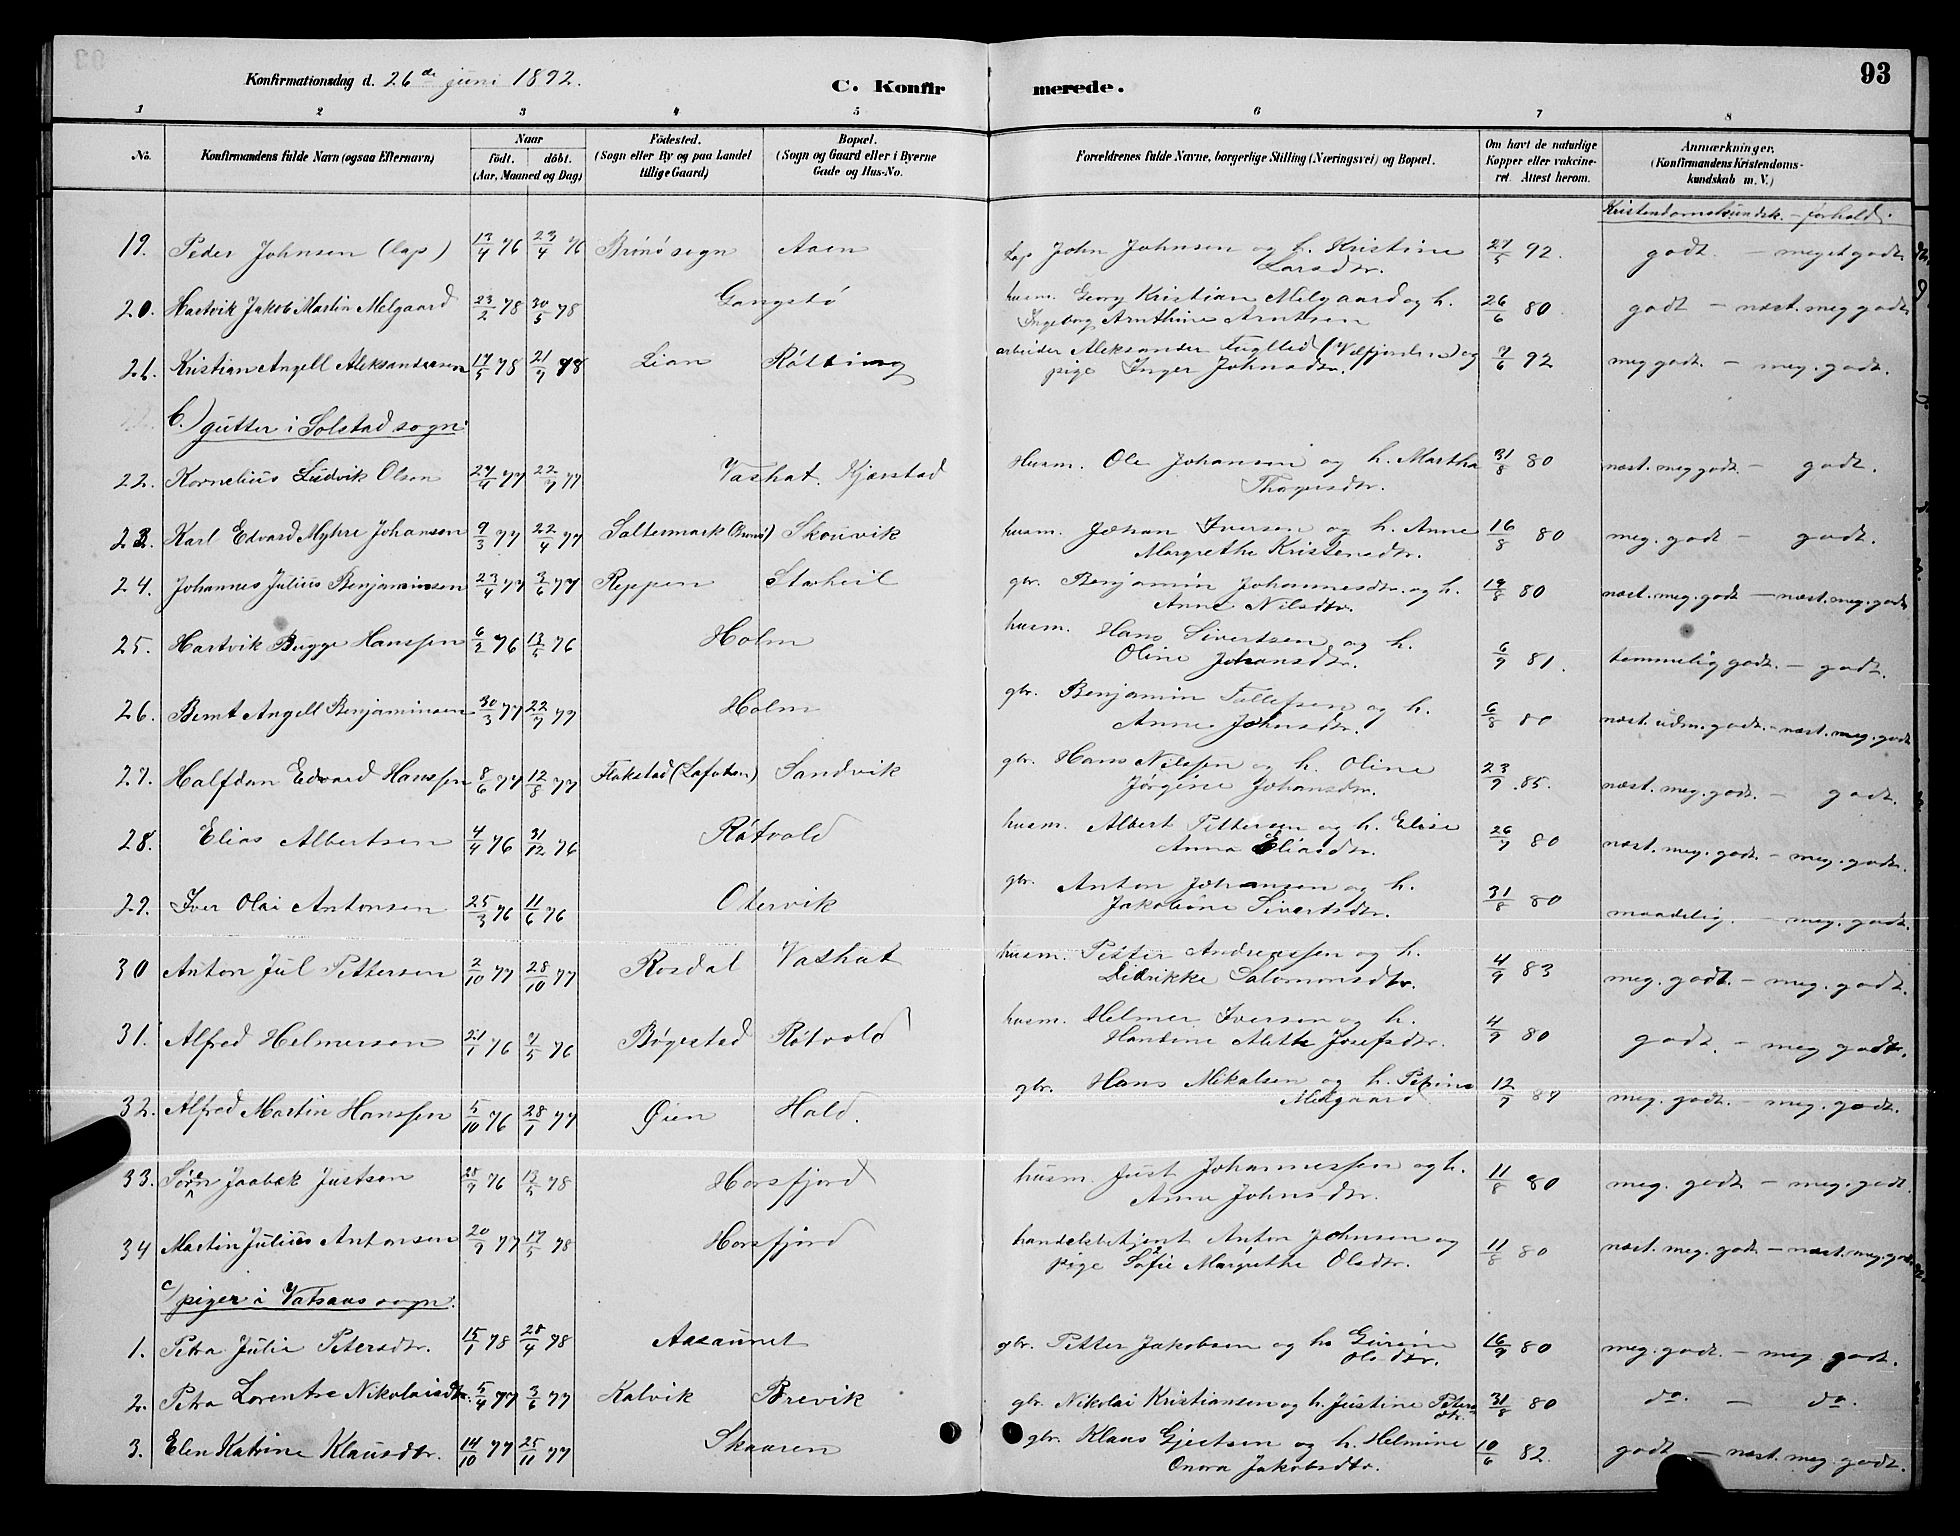 Konfirmationsdag d. 26de juni 1892.
C. Konfir
merede.
93
1 2 3 4 5 6 7 8
No.
Konfirmandens fulde Navn (ogsaa Efternavn)
Naar
födt. döbt.
(Aar, Maaned og Dag)
Födested.
(Sogn eller By og paa Landet
tillige Gaard)
Bopæl.
(Sogn og Gaard eller i Byerne
Gade og Hus-No.
Forældrenes fulde Navne, borgerlige Stilling (Næringsvei) og Bopæl.
Om havt de naturlige
Kopper eller vakcine-
ret. Attest herom.
Anmærkninger.
(Konfirmandens Kristendoms-
kundskab m. V.)
Kristendomskundsk. – forhold.
19. Peder Johnsen (lap) 13/4 76 23/4 76 Brönö sogn Aaen Lap John Johnsen og h. Kristine 27/5 92. godt. – meget godt
Larsdtr.
20. Hartvik Jakob Martin Melgaard 23/2 78 30/5 78 Gangstø husm. Georg Kristian Melgaard og h. 26/6 80. godt – næst. meg godt
Ingeborg Arnthine Arntsen
21. Kristian Angell Aleksandersen 17/5 78 21/7 78 Lian Røtting arbeider Aleksander Fuglled (Velfjorden) og 7/6 92 meg godt. – meg. godt.
pige Inger Johnsdtr.
b.) gutter i Solstad sogn:
22. Kornelius Ludvik Olsen 27/4 77 22/7 77 Vashat. Kjærstad Husm. Ole Johansen og h. Martha 31/8 80 næst. meg godt – godt.
23. Karl Edvard Myhre Johansen 9/3 77 22/4 77 Saltermark (Brönö) Skouvik husm. Johan Iversen og h. Anne 16/8 80 meg. godt – godt.
Margrethe Kristensdtr.
24. Johannes Julius Benjaminsen 23/4 77 3/6 77 Reppen Storheil gbr. Benjamin Johannesdtr. og h. 19/8 80 næst. meg. godt – næst. meg. godt
Anne Nilsdtr.
25. Hartvik Bugge Hanssen 6/2 76 13/5 76 Holm husm. Hans Sivertsen og h. 6/9 81. temmelig godt. – godt.
Oline Johansdtr.
26. Bernt Angell Benjaminsen 30/3 77 22/7 77 Holm gbr. Benjamin Tollefsen og h. 6/8 80 næst. udm. godt. – næst. meg. godt
Anne Johnsdtr.
27. Halfdan Edvard Hanssen 8/6 77 12/8 77 Flakstad (Lofoten) Sandvik gbr. Hans Nilssen og h. Oline 23/9 .85. næst. meg. godt. – godt.
Jörgine Johansdtr.
28. Elias Albertsen 4/4 76 31/12 76 Røtvold husm. Albert Pettersen og h. Elise 26/7 80 næst. meg. godt – meg. godt.
Anna Eliasdtr.
29. Iver Olai Antonsen 25/3 76 11/6 76 Otervik gbr. Anton Johansen og h. 31/8 80 maadelig. – meg. godt.
Jakobine Sivertsdtr.
30 Anton Jul Pettersen 2/10 77 28/10 77 Rosdal Vashat husm. Petter Andreassen og h. 4/9 83 meg. godt. – meg. godt.
Didrikke Salomonsdtr.
31. Alfred Helmersen 21/1 76 7/5 76 Bøgestad Røtvold husm. Helmer Iversen og h. 4/9 80 godt. – meg godt.
Hantine Alette Josefsdtr.
32. Alfred Martin Hanssen 5/10 76 28/1 77 Øien Hald. gbr. Hans Mikalsen og h. Petrine 12/7 87 meg. godt. – meg. godt.
Melgaard
33. Sören Jaabæk Justsen 28/9 76 13/5 78 Horsfjord husm. Just Johannessen og h. 11/8 80 meg. godt – meg. godt.
Anne Johnsdtr.
34 Martin Julius Antonsen 20/9 77 17/5 78 Horsfjord handelsbetjent Anton Johnsen og 11/8 80 næst. meg. godt – næst. meg. godt
pige Sofie Margrethe Olsdtr.
c/ piger i Vatsaas sogn.
1. Petra Julie Petersdtr. 15/1 78 28/4 78 Aasaunet gbr. Petter Jakobsen og h. Gurine 16/9 80 meg. godt. – meg. godt.
Olsdtr.
2. Petra Lorentze Nikolaisdtr. 5/4 77 3/6 77 Kalvik Brevik gbr. Nikolai Kristiansen og h. Justine Peters 31/8 80 do. – do.
dtr.
3. Elen Katrine Klausdtr. 14/10 77 25/11 77 Skaaren gbr. Klaus Gjertsen og h. Helmine 10/6 82. godt – næst. meg. godt.
Onora Jakobsdtr.